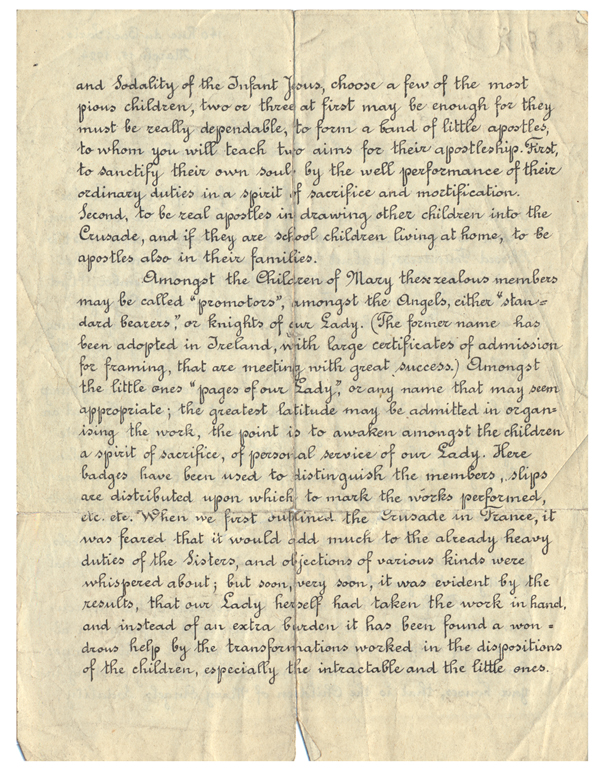 and Sodality of the Infant Jesus, choose a few of the most
pious children, two or three at first may be enough for they
must be really dependable, to form a band of little apostles,
to whom you will teach two aims for their apostleship. First,
to sanctify their own souls by the well performance of their
ordinary duties in a spirit of sacrifice and mortification.
Second, to be real apostles in drawing other children into the
Crusade, and if they are school children living at home, to be
apostles also in their families.
Amongst the Children of Mary these zealous members
may be called "promotors", amongst the Angels, either "stan=
dard bearers," or knights of our Lady. (The former name has
been adopted in Ireland, with large certificates of admission
for framing, that are meeting with great success.) Amongst
the little ones "pages of our Lady", or any name that may seem
appropriate; the greatest latitude may be admitted in organ=
ising the work, the point is to awaken amongst the children
a spirit of sacrifice, of personal service of our Lady. Here
badges have been used to distinguish the members, slips
are distributed upon which to mark the works performed,
etc. etc. When we first outlined the Crusade in France, it
was feared that it would add much to the already heavy
duties of the Sisters, and objections of various kinds were
whispered about; but soon, very soon, it was evident by the
results, that our Lady herself had taken the work in hand,
and instead of an extra burden it has been found a won=
drous help by the transformations worked in the dispositions
of the children, especially the intractable and the little ones.